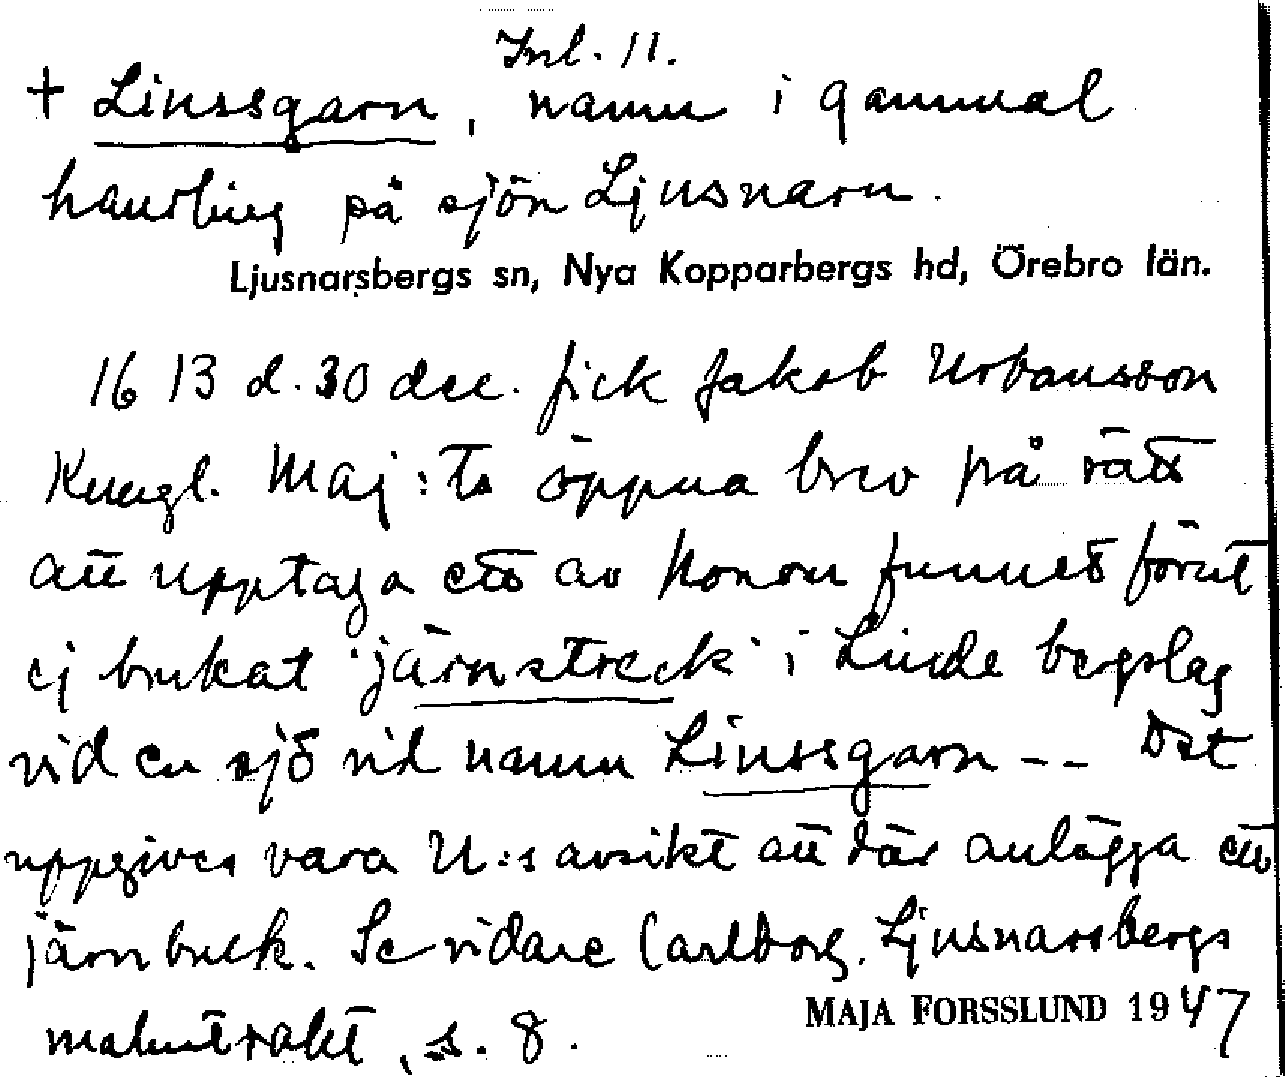 Inl. 11.
+ Linssgarn, namn i gammal
handling på sjön Ljusnarn.
Ljusnarsbergs sn, Nya Kopparbergs hd, Örebro län.
1613 d. 30 dec. fick Jakob Urbansson
Kungl. Maj:ts öppna brev på rätt
att upptaga ett av honom funnet förut
ej brukat järnstreck i Linde bergslag
vid en sjö vid namn Linssgarn -- Det
uppgives vara U:s avsikt att där anlägga ett
järnbruk. Se vidare Carlborg. Ljusnarsbergs
malmtrakt, s. 8.
MAJA FORSSLUND 1947